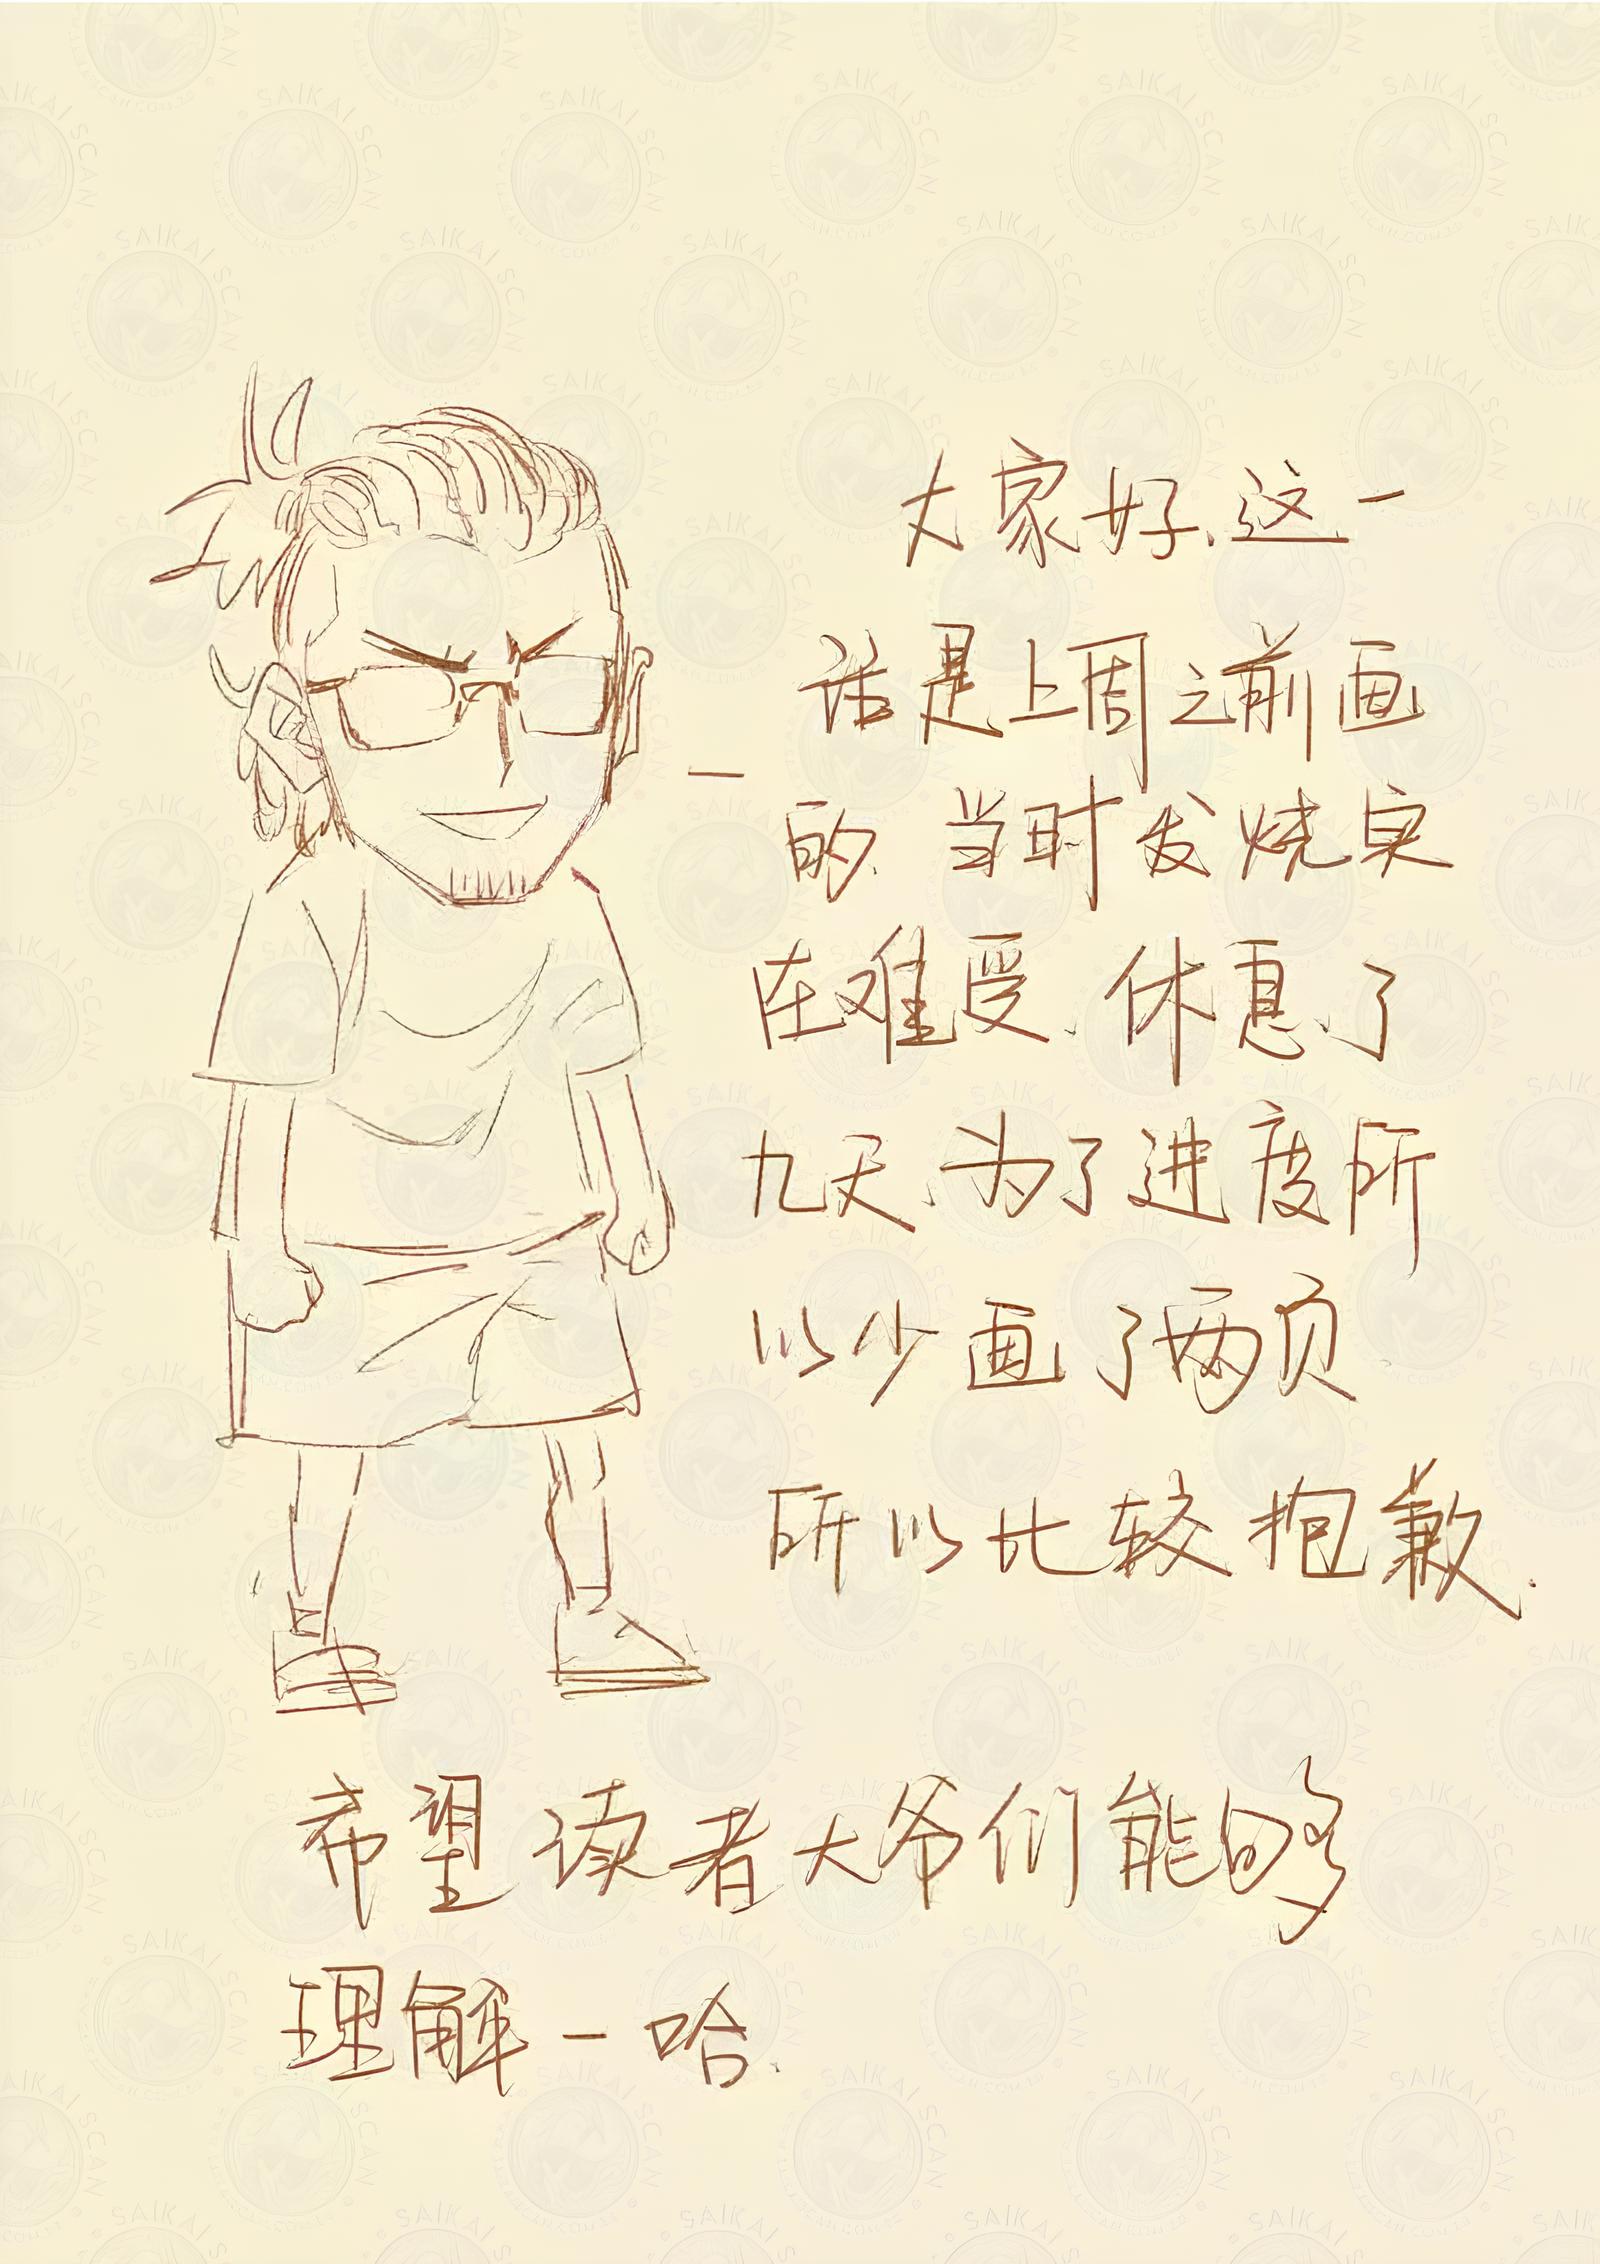 大家好、这一
话是上周之前画
的、当时发烧实
在难受、休息了
九天、为了进度所
以少画了两页
所以比较抱歉.
希望读者大爷们能够
理解一哈.
SAIKAI SCAN